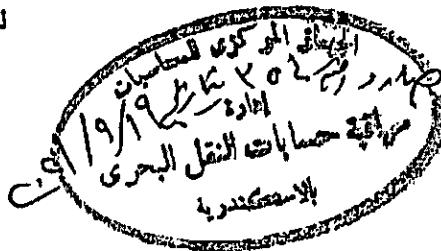 الجهاز المركزى للمحاسبات
صادر رقم ٣٥ تاريخ ١٩/٩/
إدارة
مراقبة حسابات النقل البحرى
بالاسكندرية